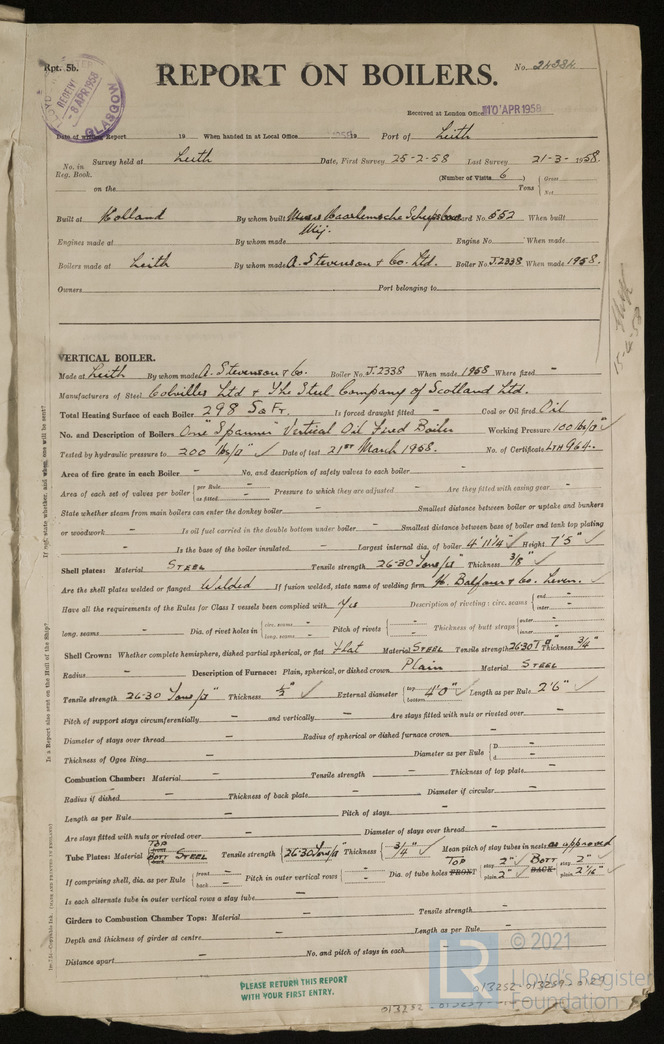 Rpt. 5b.
REPORT ON BOILERS.
No. 24384
RECEIVED
8 APR 1958
GLASGOW
Received at London Office 10 APR 1958
Date of writing Report 19 When handed in at Local Office 19 Port of Leith
No. in Reg. Book. Survey held at Leith Date, First Survey 25-2-58 Last Survey 21-3-1958.
(Number of Visits 6)
on the Tons { Gross Net
Built at Holland By whom built Messrs Haarlemsche Scheepsbouw Mij. Yard No. 552 When built
Engines made at By whom made Engine No. When made
Boilers made at Leith By whom made A. Stevenson & Co. Ltd. Boiler No. J.2338 When made 1958.
Owners Port belonging to
VERTICAL BOILER.
Made at Leith By whom made A. Stevenson & Co. Boiler No. J.2338 When made 1958 Where fixed -
Manufacturers of Steel Colvilles Ltd & The Steel Company of Scotland Ltd.
Total Heating Surface of each Boiler 298 Sq Ft. Is forced draught fitted - Coal or Oil fired Oil
No. and Description of Boilers One "Spanner" Vertical Oil Fired Boiler Working Pressure 100 lbs/□" ✓
Tested by hydraulic pressure to 200 lbs/□" ✓ Date of test 21st March 1958. No. of Certificate LTH 964.
Area of fire grate in each Boiler - No. and description of safety valves to each boiler -
Area of each set of valves per boiler { per Rule - as fitted - Pressure to which they are adjusted - Are they fitted with easing gear -
State whether steam from main boilers can enter the donkey boiler - Smallest distance between boiler or uptake and bunkers
or woodwork - Is oil fuel carried in the double bottom under boiler - Smallest distance between base of boiler and tank top plating
- Is the base of the boiler insulated - Largest internal dia. of boiler 4' 11 1/4" ✓ Height 7' 5" ✓
Shell plates: Material STEEL Tensile strength 26-30 Tons/□" ✓ Thickness 3/8" ✓
Are the shell plates welded or flanged Welded If fusion welded, state name of welding firm H. Balfour & Co. Leven. ✓
Have all the requirements of the Rules for Class I vessels been complied with Yes Description of riveting: circ. seams { end - inter. -
long. seams - Dia. of rivet holes in { circ. seams - long. seams - Pitch of rivets { - Thickness of butt straps { outer - inner -
Shell Crown: Whether complete hemisphere, dished partial spherical, or flat Flat Material STEEL Tensile strength 26-30 T/□" Thickness 3/4"
Radius - Description of Furnace: Plain, spherical, or dished crown Plain Material STEEL
Tensile strength 26-30 Tons/□" Thickness 1/2" ✓ External diameter { top bottom 4' 0" ✓ Length as per Rule 2' 6" ✓
Pitch of support stays circumferentially - and vertically - Are stays fitted with nuts or riveted over -
Diameter of stays over thread - Radius of spherical or dished furnace crown -
Thickness of Ogee Ring - Diameter as per Rule { D - d -
Combustion Chamber: Material - Tensile strength - Thickness of top plate -
Radius if dished - Thickness of back plate - Diameter if circular -
Length as per Rule - Pitch of stays -
Are stays fitted with nuts or riveted over - Diameter of stays over thread -
Tube Plates: Material { TOP front BOTT back STEEL Tensile strength { 26-30 Tons/□" Thickness { 3/4" ✓ Mean pitch of stay tubes in nests as approved
If comprising shell, dia. as per Rule { front - back - Pitch in outer vertical rows { - Dia. of tube holes TOP FRONT { stay 2" ✓ plain 2" BOTT BACK { stay 2" plain 2 1/16" ✓
Is each alternate tube in outer vertical rows a stay tube -
Girders to Combustion Chamber Tops: Material - Tensile strength -
Depth and thickness of girder at centre - Length as per Rule -
Distance apart - No. and pitch of stays in each -
PLEASE RETURN THIS REPORT
WITH YOUR FIRST ENTRY.
013252-013259-0129
© 2021
LR
Lloyd's Register
Foundation
Is a Report also sent on the Hull of the Ship?
If not, state whether, and when, one will be sent?
(MADE AND PRINTED IN ENGLAND)